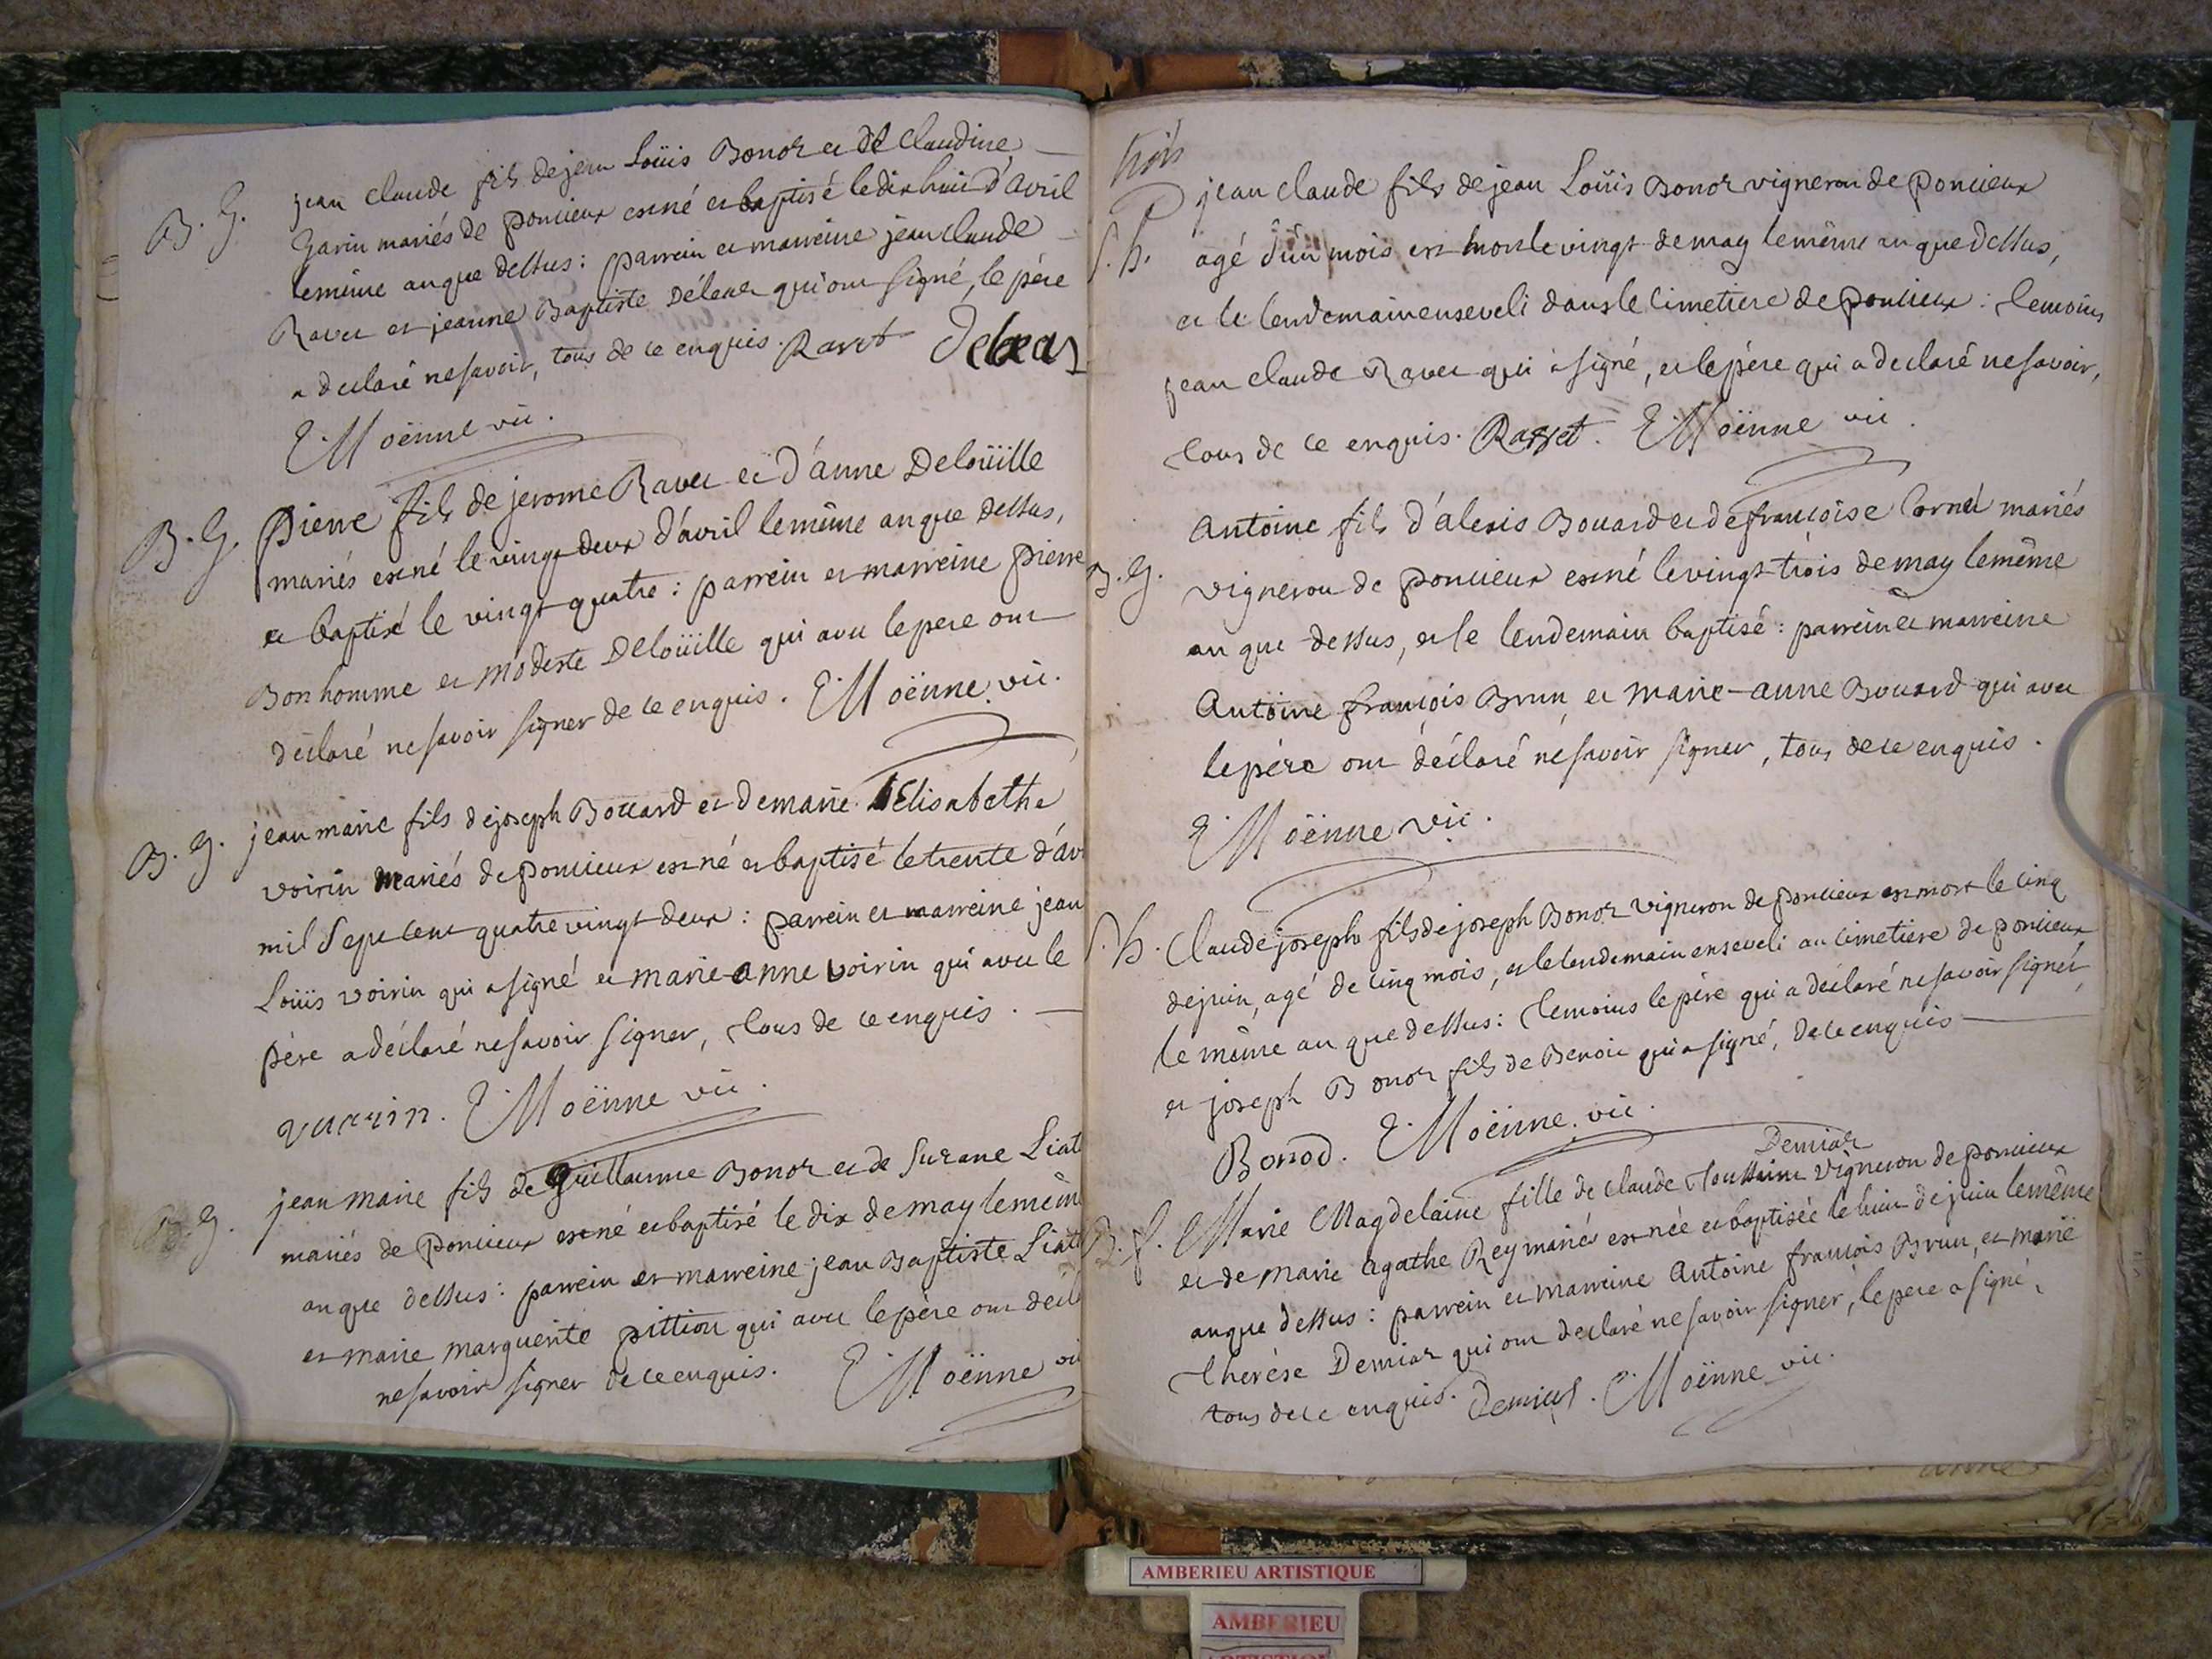 B. G. jean claude fils de jean Loüis Bonoz et de Claudine
Garin mariés de poncieux est né et baptisé le dix huit d'avril
le même an que dessus : parrein et marreine jean claude
Ravet et jeanne Baptiste Délean qui ont signé, le père
a declaré ne savoir, tous de ce enquis. Ravet
E. Moënne vic.
B. G. Pierre fils de jerome Ravet et d'anne Deloüille
mariés est né le vingt deux d'avril le même an que dessus,
et baptisé le vingt quatre : parrein et marreine pierre
Bonhomme et modeste Deloüille qui avec le pere ont
déclaré ne savoir signer de ce enquis. E. Moënne vic.
B. G. jean marie fils de joseph Bouard et de marie Elisabethe
voirin mariés de poncieux est né et baptisé le trente d'av
mil sept cent quatre vingt deux : parrein et marreine jean
Loüis voirin qui a signé et marie-anne voirin qui avec le
père a déclaré ne savoir signer, tous de ce enquis.
vuarin. E. Moënne vic.
B. G. jean marie fils de Guillaume Bonoz et de Suzane Liat
mariés de poncieux est né et baptisé le dix de may le mêm
an que dessus : parrein et marreine jean Baptiste Liat
et marie marguerite pittion qui avec le père ont décl
ne savoir signer de ce enquis. E. Moënne vi
trois
jean claude fils de jean Loüis Bonoz vigneron de poncieux
S. h. agé d'un mois est mort le vingt de may le même an que dessus,
et le lendemain enseveli dans le cimetiere de poncieux : temoins
jean claude Ravet qui a signé, et le père qui a declaré ne savoir,
tous de ce enquis. Ravet. E. Moënne vic.
Antoine fils d'alexis Bouard et de françoise Cornet mariés
B. G. vigneron de poncieux est né le vingt-trois de may le même
an que dessus, et le lendemain baptisé : parrein et marreine
Antoine françois Brun et marie-anne Bouard qui avec
le père ont déclaré ne savoir signer, tous de ce enquis.
E. Moënne vic.
S. h. Claude joseph fils de joseph Bonoz vigneron de poncieux est mort le cinq
de juin, agé de cinq mois, et le lendemain enseveli au cimetiere de poncieux
le même an que dessus : temoins le père qui a déclaré ne savoir signer,
et joseph Bonoz fils de Benoit qui a signé, de ce enquis
Bonod. E. Moënne. vic.
Demiaz
B. f. Marie Magdelaine fille de claude Toussaint vigneron de poncieux
et de marie agathe Rey mariés est née et baptisée le huit de juin le même
an que dessus : parrein et marreine Antoine françois Brun, et marie
Therèse Demiaz qui ont declaré ne savoir signer, le pere a signé,
tous de ce enquis. Demiaz. E. Moënne vic.
AMBERIEU ARTISTIQUE
AMBERIEU
ARTISTIQUE